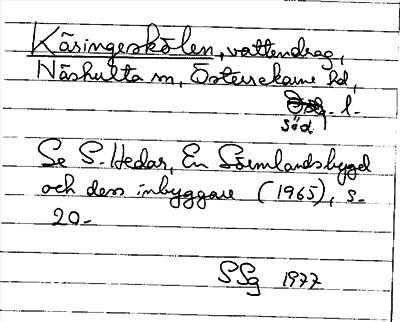 Käringeskölen, vattendrag,
Näshulta sn, Österrekarne hd,
Ög. l.
söd
Se S. Hedar, En Sörmlandsbygd
och dess inbyggare (1965), s.
20.
SSg 1977